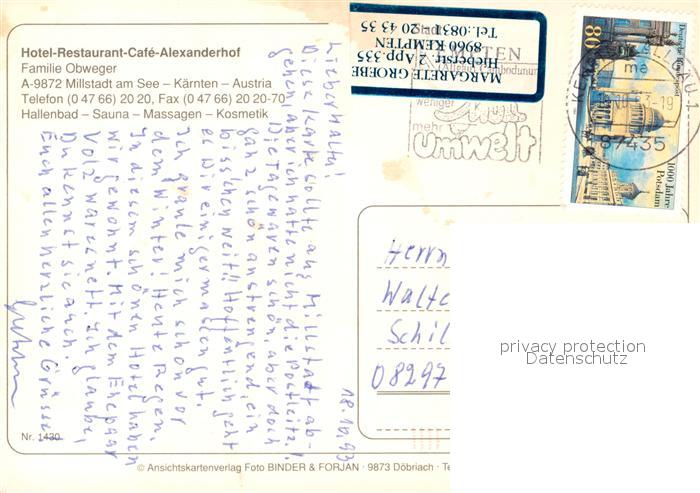 Hotel-Restaurant-Café-Alexanderhof
Familie Obweger
A-9872 Millstadt am See – Kärnten – Austria
Telefon (0 47 66) 20 20, Fax (0 47 66) 20 20-70
Hallenbad – Sauna – Massagen – Kosmetik
18.10.93
Lieber Walter!
Diese Karte sollte aus Millstatt ab-
gehen, aber ich hatte nicht die Postleitz.!
Die Tage waren schön, aber doch
ganz schön anstrengend, ein
bisschen weit!! Hoffentlich geht
es Dir einigermaßen gut.
Ich graule mich schon vor
dem Winter! Heute Regen.
In diesem schönen Hotel haben
wir gewohnt. Mit dem Ehepaar
Volz war es nett. Ich glaube,
Du kennst sie auch.
Euch allen herzliche Grüsse
Nr. 1430
MARGARETE GROEBE
Hieberstr. 2 App. 335
8960 KEMPTEN
Tel.: 0831 / 20 43 35
Stadt
KEMPTEN
(Allgäu)
weniger
Müll
mehr
umwelt
87435
80
Deutsche Bundespost
1000 Jahre
Potsdam
Herrn
Walte
Schil
08297
privacy protection
Datenschutz
© Ansichtskartenverlag Foto BINDER & FORJAN · 9873 Döbriach · Te